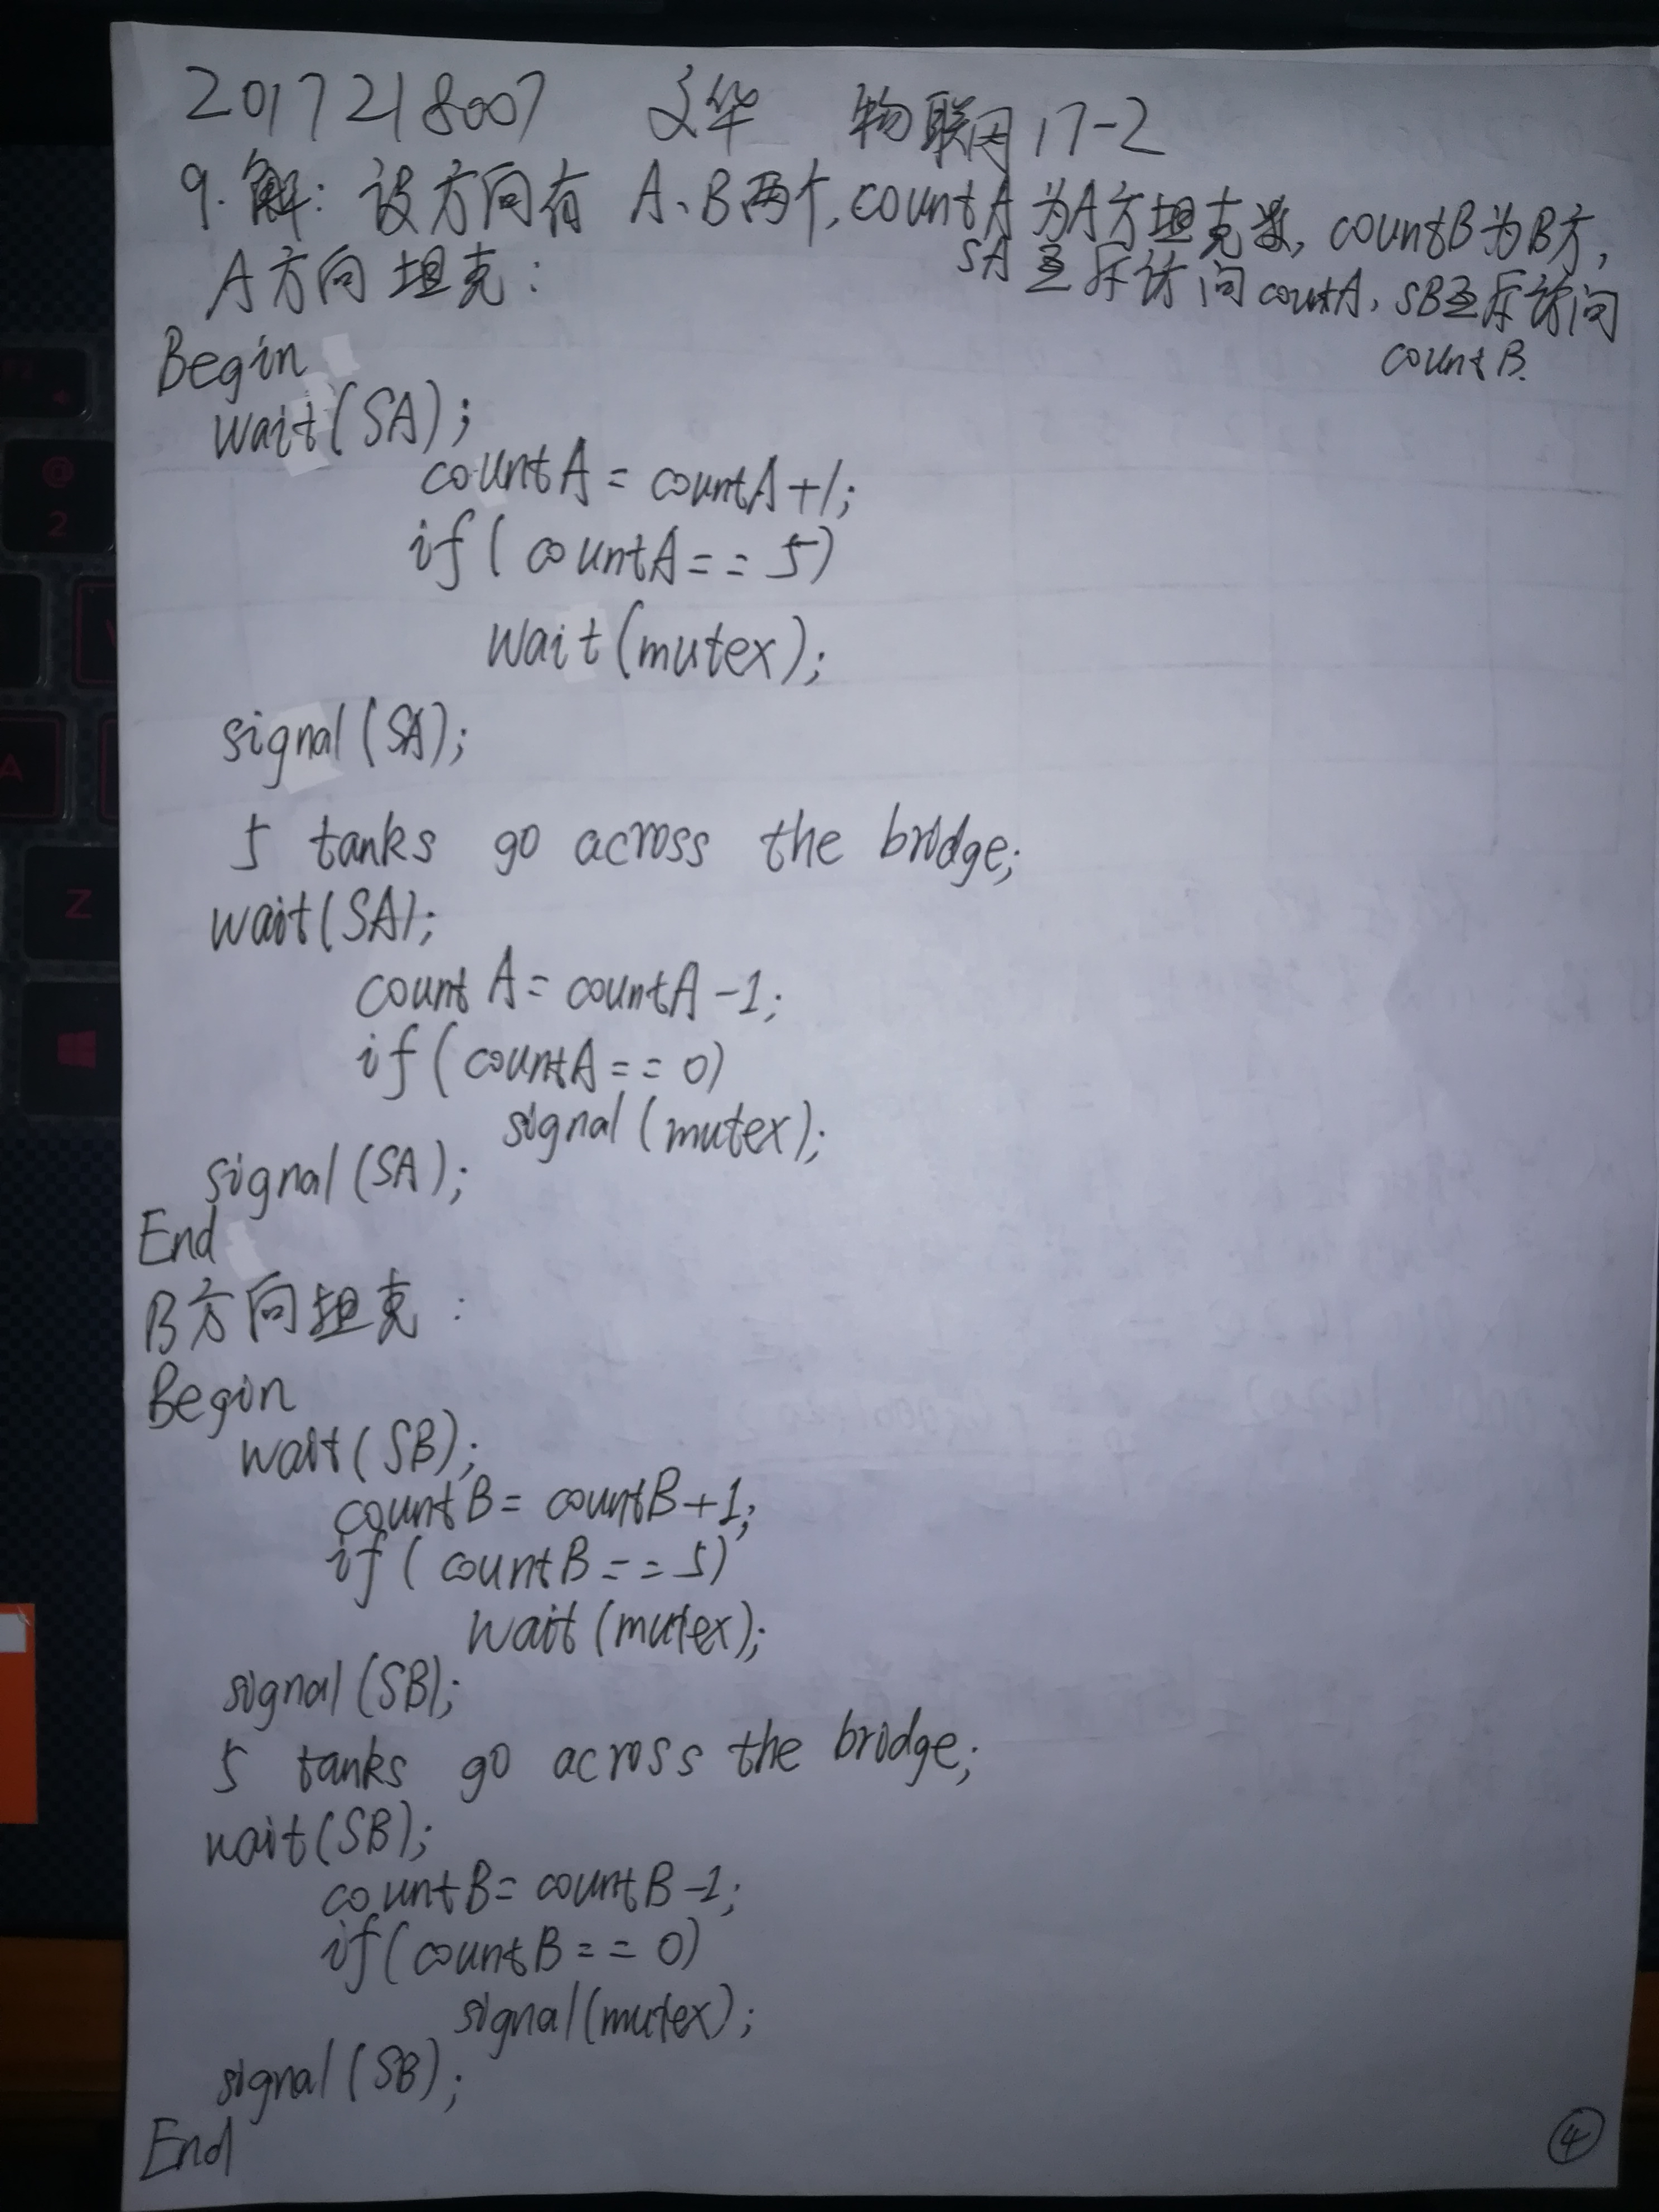 2017218007 文华 物联网17-2
9.解: 设方向有 A、B两个, countA为A方坦克数, countB为B方,
SA互斥访问countA, SB互斥访问
countB.
A方向坦克:
Begin
wait(SA);
countA = countA+1;
if (countA == 5)
wait(mutex);
signal(SA);
5 tanks go across the bridge;
wait(SA);
countA = countA-1;
if (countA == 0)
signal(mutex);
signal(SA);
End
B方向坦克:
Begin
wait(SB);
countB = countB+1;
if (countB == 5)
wait(mutex);
signal(SB);
5 tanks go across the bridge;
wait(SB);
countB = countB-1;
if (countB == 0)
signal(mutex);
signal(SB);
End
④